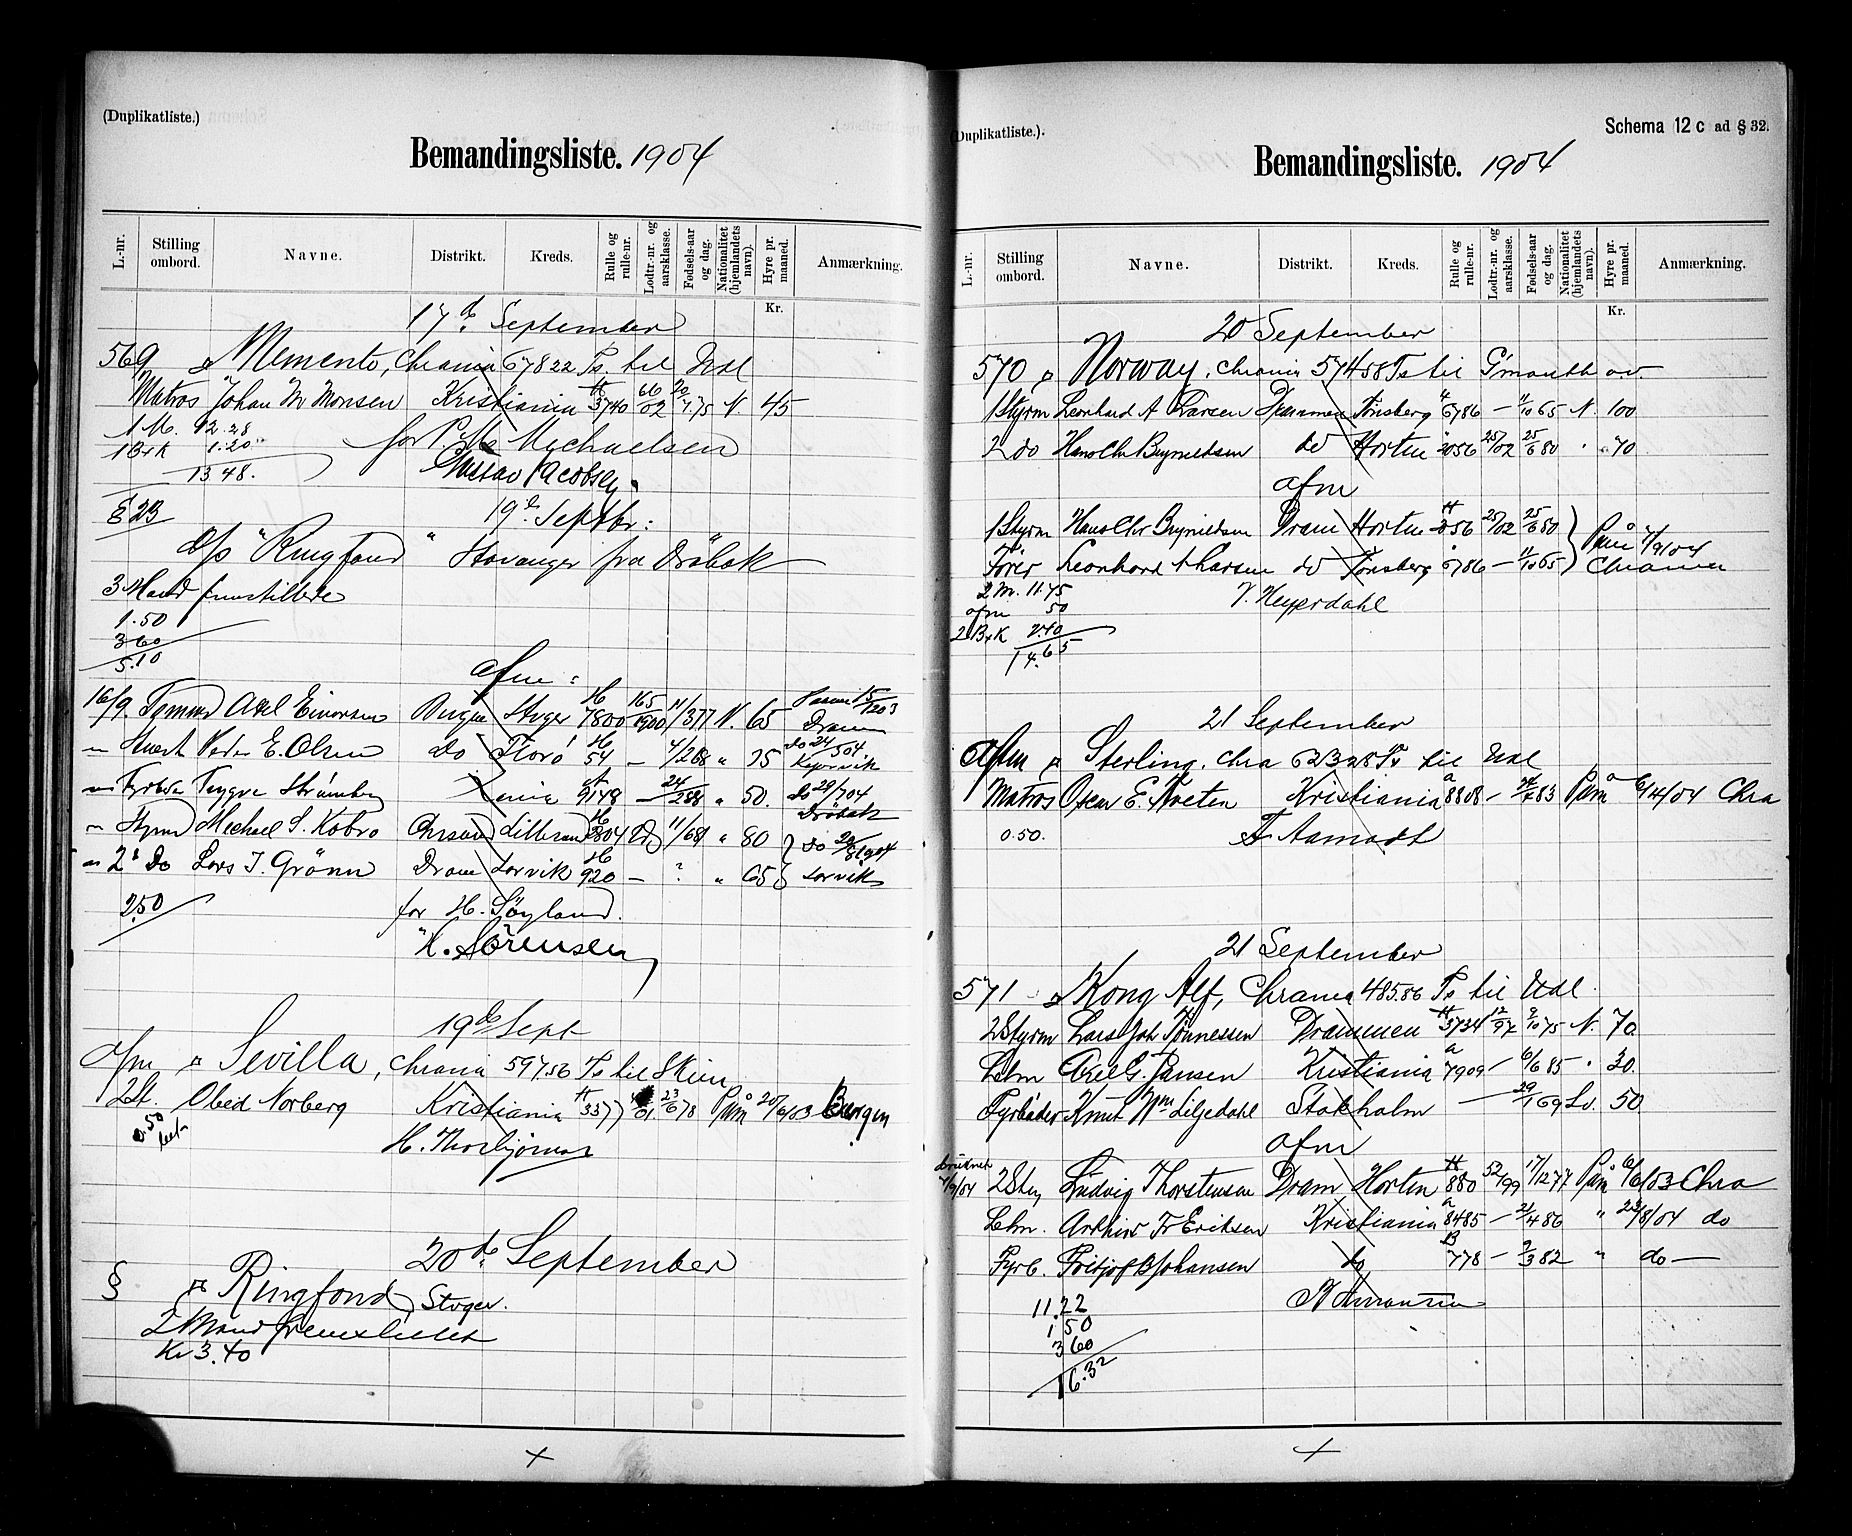 (Duplikatliste.)
Bemandingsliste. 1904
L.-nr. Stilling ombord. Navne. Distrikt. Kreds. Rulle og rulle-nr. Lodtr.-nr. og aarsklasse. Fødsels-aar og dag. Nationalitet (hjemlandets navn). Hyre pr. maaned. Anmærkning.
Kr.
17de September
569 Memento, Chrania 678 22 Ts. til Udl
Matros Johan M Monsen Kristiania H 3740 66/02 20/4 75 N. 45
1 M. 12.28 for P. M. Michaelsen
1 B+K 1.20
13 48. Gustav Jacobsen
§ 23 19de Septbr:
D/s "Ringfond" Stavanger fra Drøbak
3 Mand fremstillede
1.50
3 60
5.10
afm:
16/9. Axel Einarsen Bergen Stvger H 7800 165/1900 11/3 77 N. 65 15/12 03 Dram
" Peder E. Olsen do Florø H 54 — 4/2 68 " 75 do 24/5 04
" Trygve Strømberg ania A 9148 — 24/2 88 " 50. do 29/7 04 Drøbak
" Styrm Michael S. Kobro Chrsand Lillesand H 2804 11/6 81 " 80 do 29/8 1904
" 2' Do Lars J. Grönn Dram Larvik H 920 — ? " 65 Larvik
2.50 for H. Søyland.
H. Sörensen
19de Sept
afm Sevilla, Chrania 597.56 Ts til Skien
2 St. Obed Norberg Kristiania H 3377 01. 23/6 78 Paam 20/6/03 Bergen
0.50 H. Thorbjørnsen
20de September
§ Ringfond, Stvger.
2 Mand fremstillet
Kr 3.40
(Duplikatliste.).
Schema 12 c ad § 32.
Bemandingsliste. 1904
L.-nr. Stilling ombord. Navne. Distrikt. Kreds. Rulle og rulle-nr. Lodtr.-nr. og aarsklasse. Fødsels-aar og dag. Nationalitet (hjemlandets navn). Hyre pr. maaned. Anmærkning.
Kr.
20 September
570 Norway, Chrania 574 58 Ts til G'mouth o.v.
1 Styrm Leonhard A Larsen Drammen Tønsberg H 6786 — 11/10 65 N. 100
2 do Hans Chr Brynildsen do Horten 2056 25/02 25/6 80 " 70
afm
1 Styrm Hans Chr Brynildsen Dram Horten H 2056 25/02 25/6 80 Paam 7/9/04
Fører Leonhard A Larsen do Tønsberg 6786 — 11/10 65 Chrania
2 M. 11.75 V. Heyerdahl
afm 50
2 B+K 2.40
14.65
21 September
Afm Sterling, Chra 623 28 Ts til Udl
Matros Oscar E. Kveten Kristiania A 8808 — 83 Paam 6/4/04 Chra
0.50. F Aamodt
21 September
571 Kong Alf, Chrania 485.86 Ts til Udl.
2 Styrm Lars Joh Tønnessen Drammen H 3734 12/97 9/10 75 N. 70
Letm Axel G. Jansen Kristiania A 7909 — 6/6 85 " 30
Fyrbøder Knut Wm Liljedahl Stokholm — 29/1 69 Sv. 50
afm
7/9/04 2 Sty Ludvig Thorstensen Dram Horten H 880 52/99 17/12 77 Paam 6/6/03 Chra
Letm. Arthur Fr Eriksen Kristiania A 8485 — 2/4 86 " 23/8/04 do
Fyrb. Fritjof B Johansen do B 778 — 9/3 82 " do —
11.22 Amansen
1 50
3 60
16.32